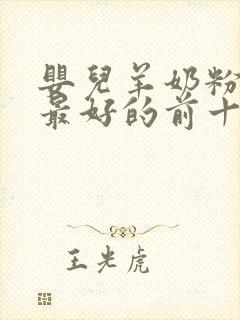 嬰兒羊奶粉
最好的前十
王光虎